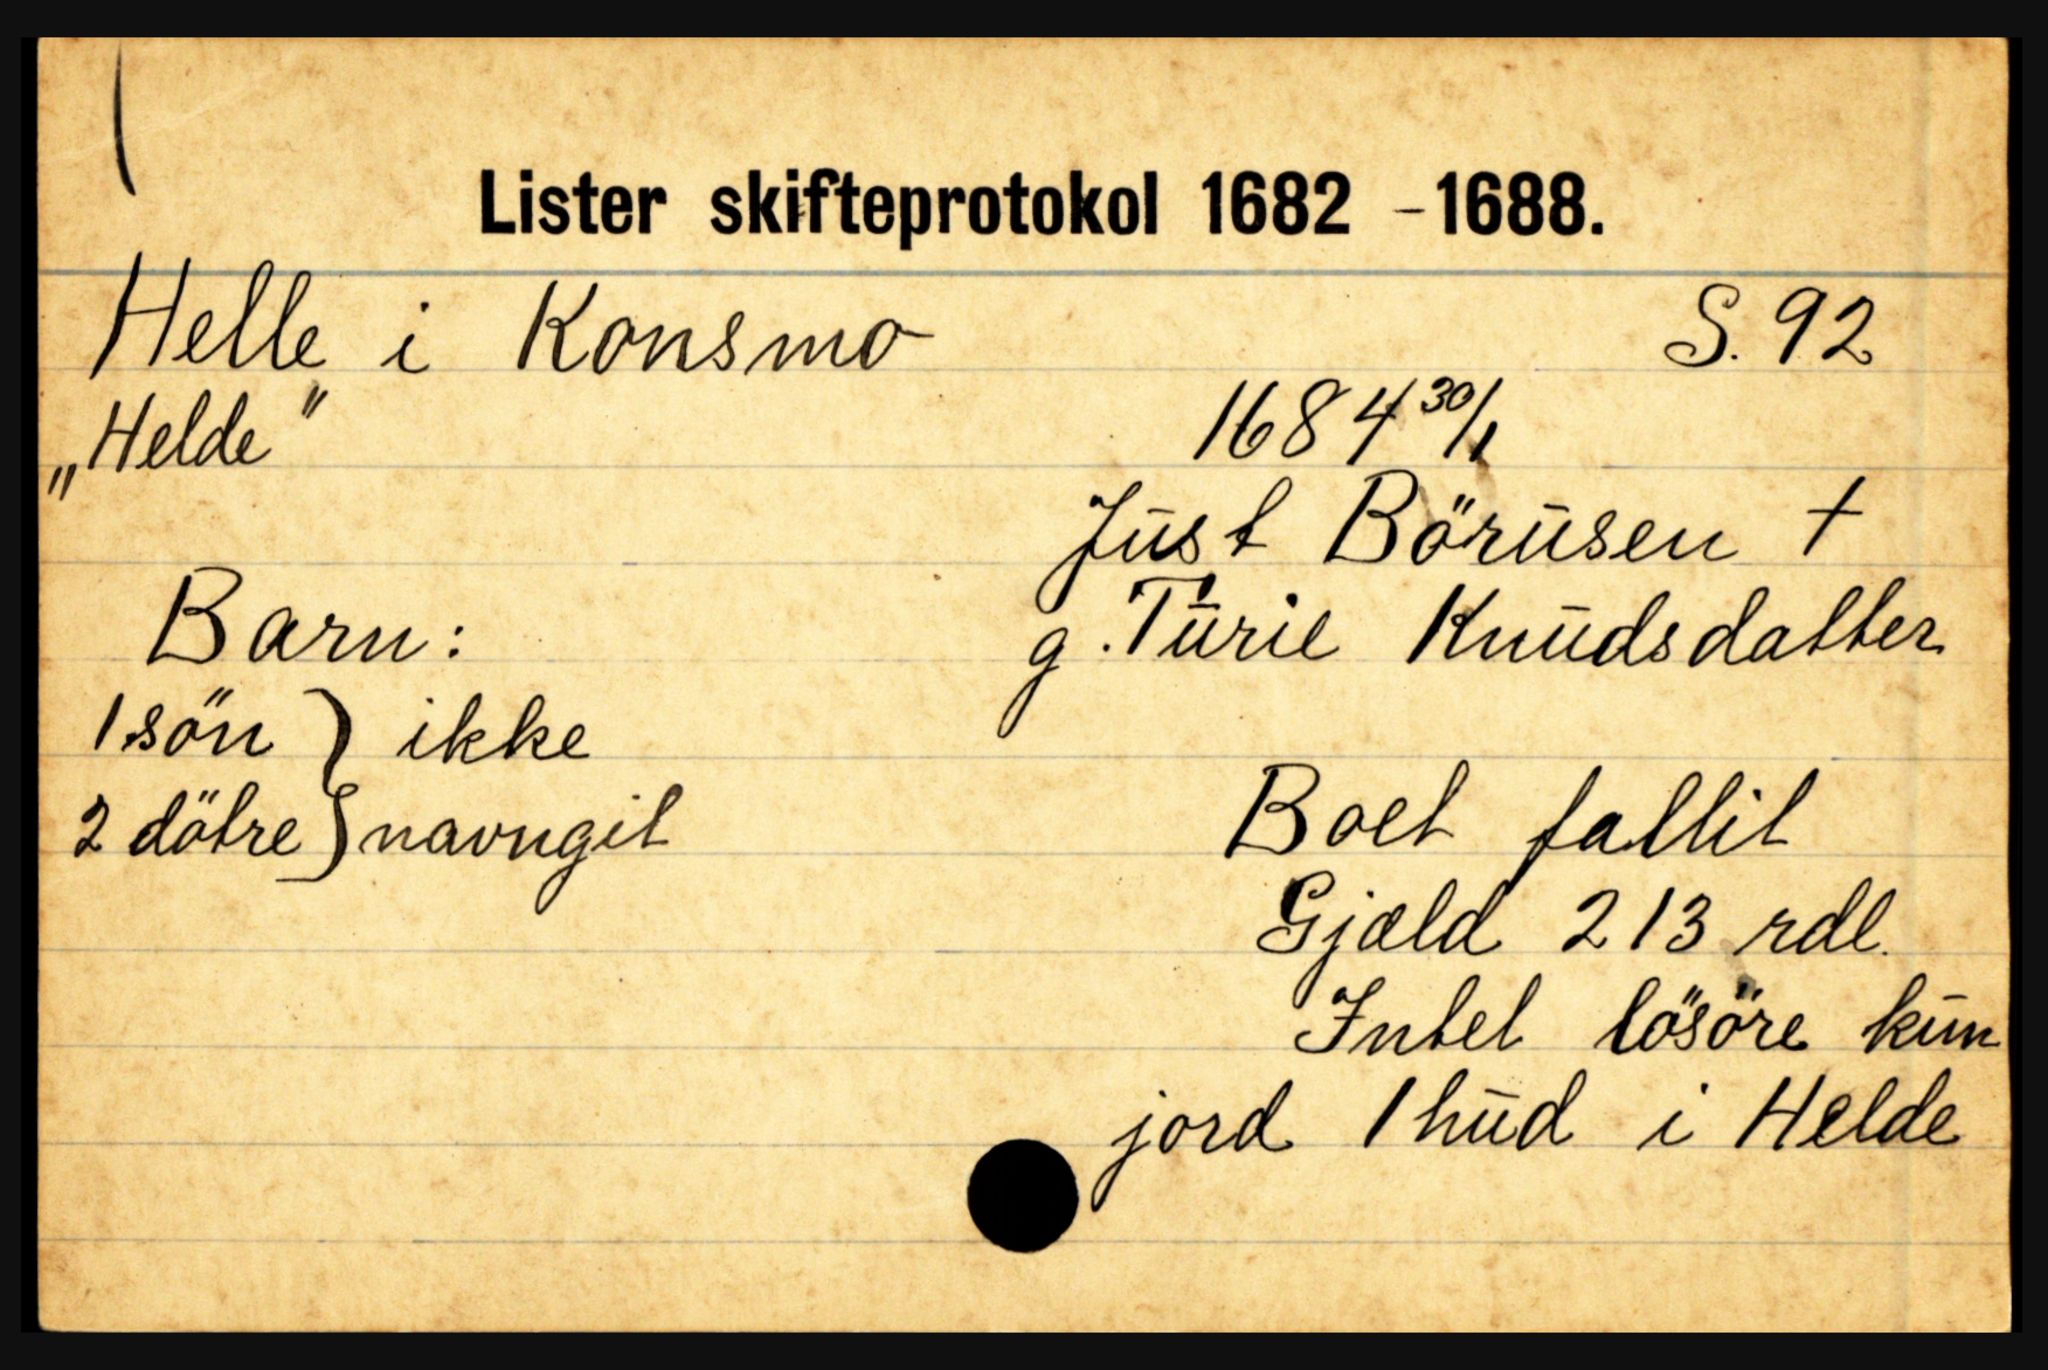 Lister skifteprotokol 1682 - 1688.
Helle i Konsmo S. 92
„Helde" 1684 30/1
Just Börusen †
Barn: g. Turil Knudsdatter
1 sön } ikke
2 dötre } navngit Boet fallit
Gjæld 213 rdl.
Intet lösöre kun
jord 1 hud i Helde